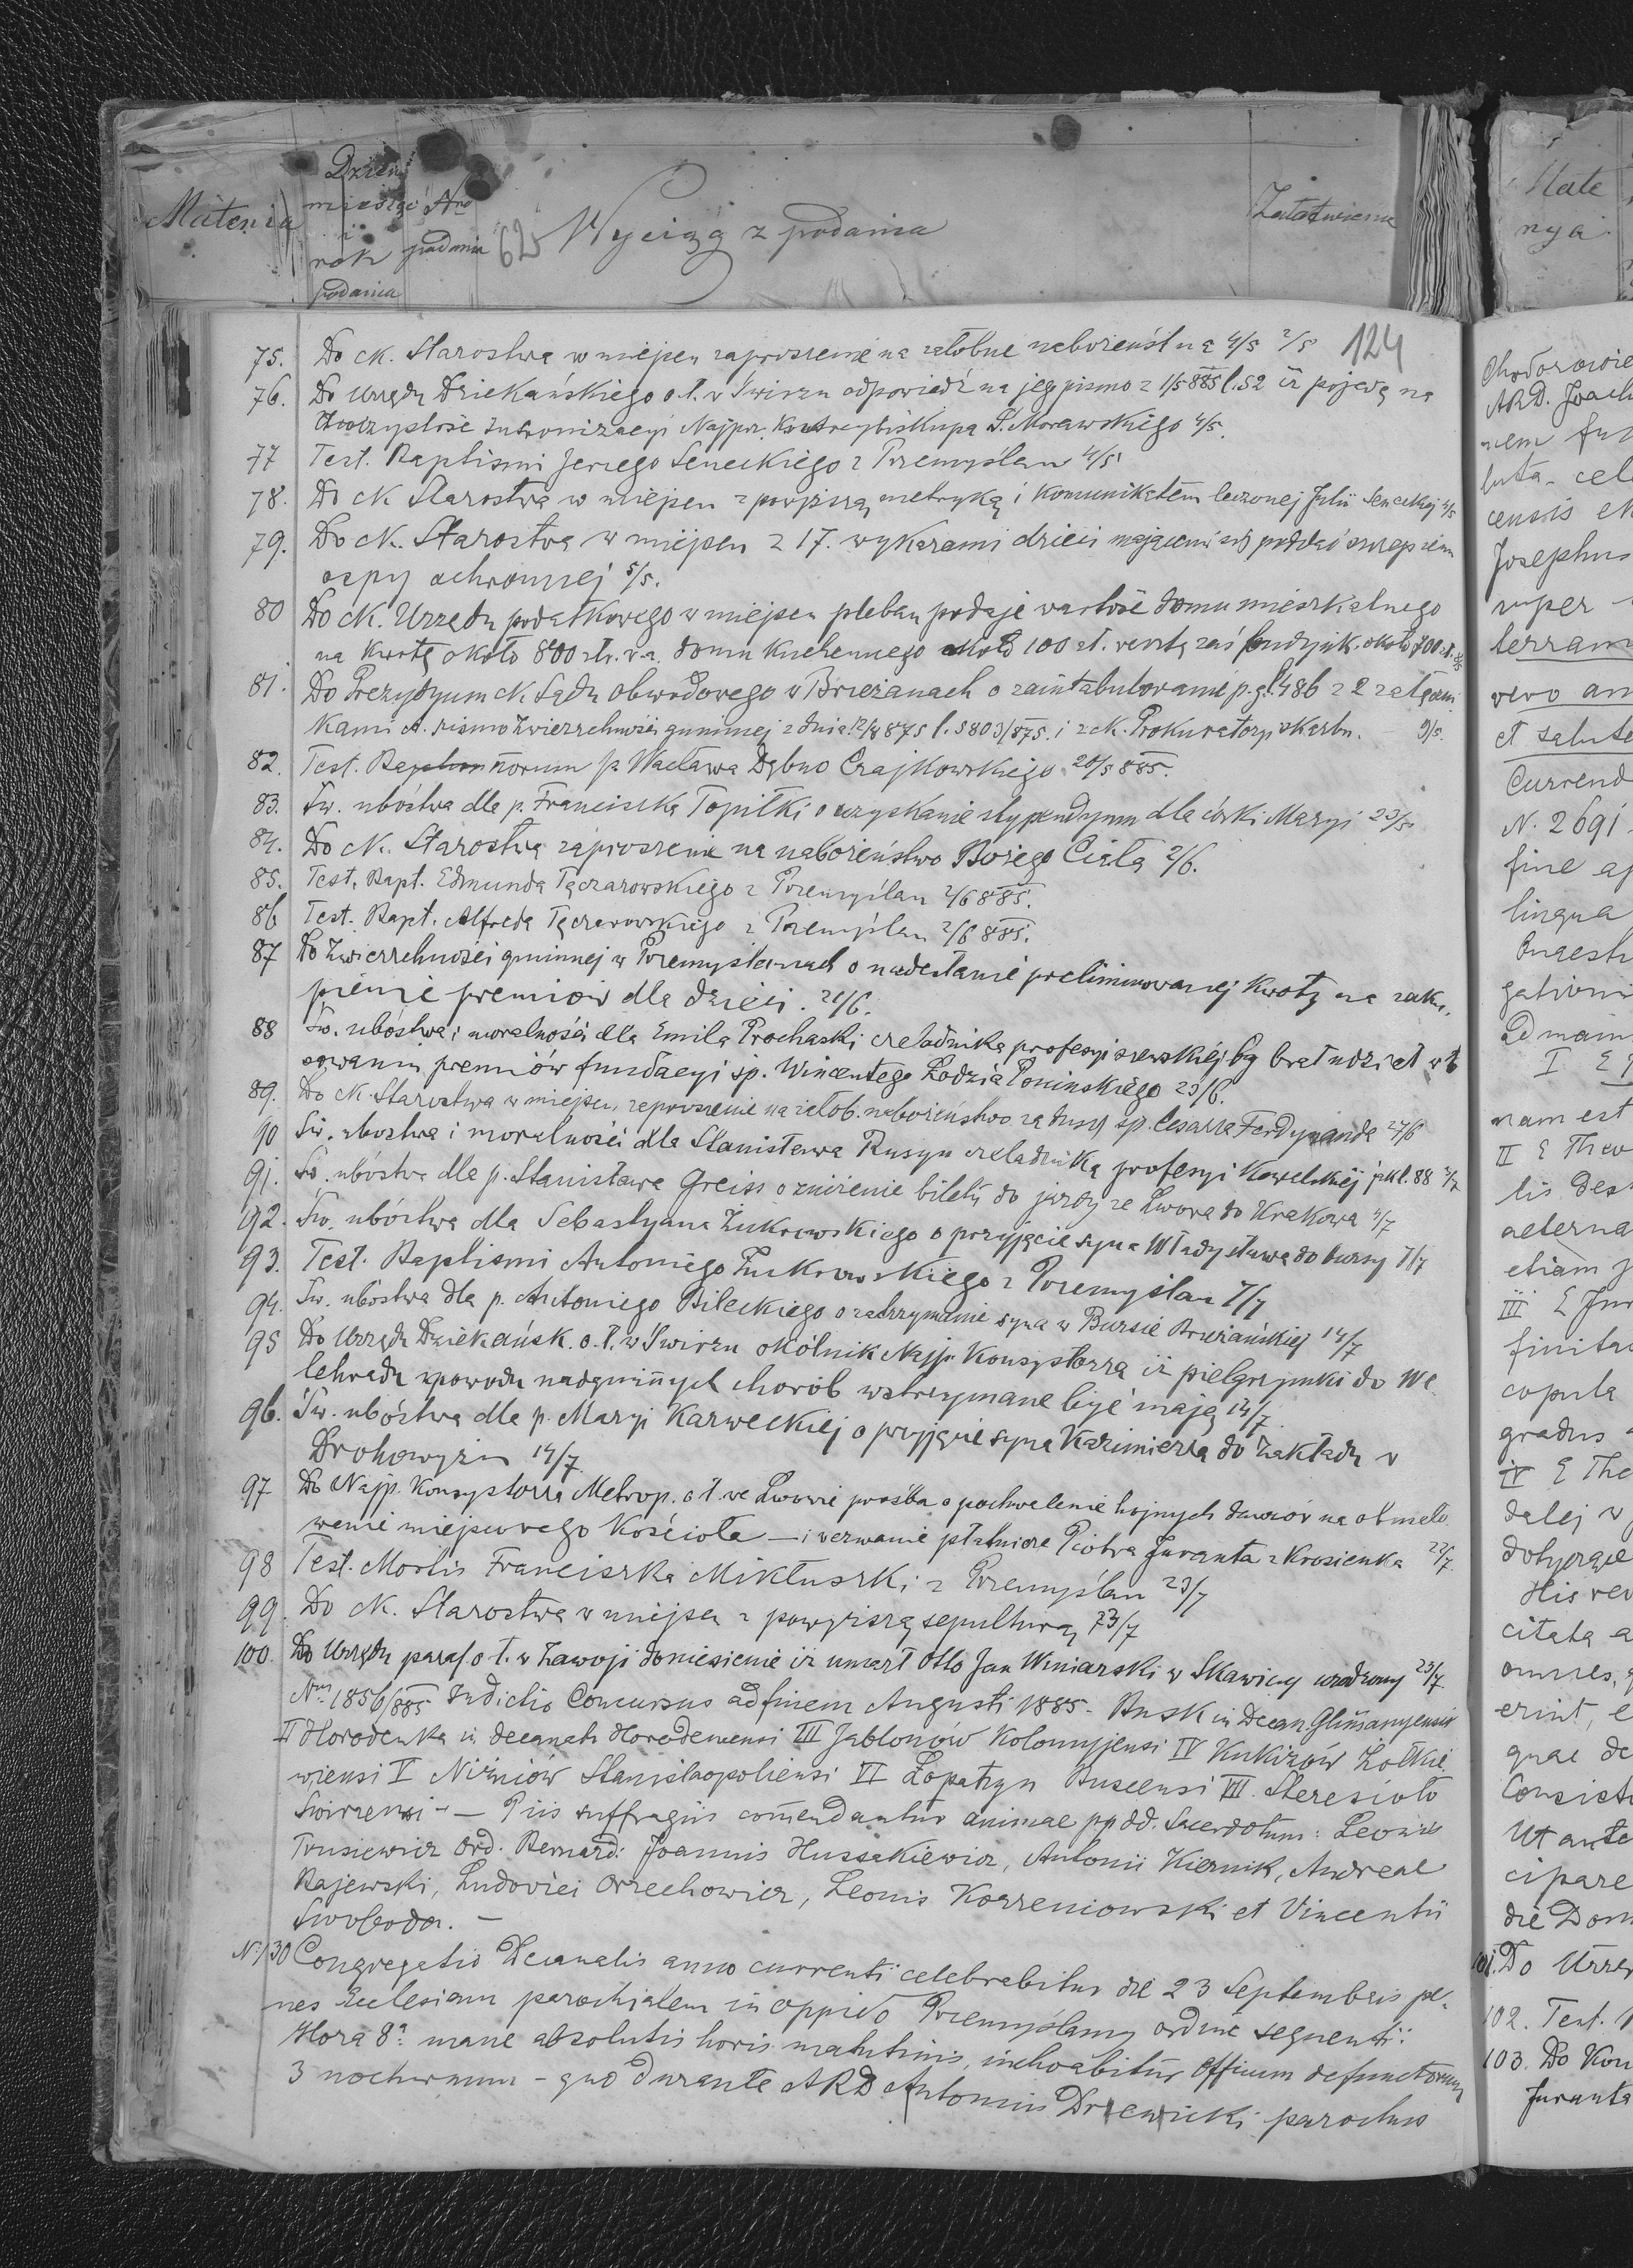 Materia
Dzień
miesiąc
i
rok
podania
Nro
podania
62
Wyciąg z podania
Załatwienie
Mate
rya
124
75. Do ck. Starostwa w miejscu zaproszenie na żałobne nabożeńst na 4/5 2/5
76. Do Urzędu Dziekańskiego o.ł. w Świrzu odpowiedź na jego pismo z 1/5 885 l. 52 iż pojadę na
Uroczystość intronizacyi Najprz. Ks. Arcybiskupa S. Morawskiego 4/5.
77 Test. Baptismi Jerzego Seneckiego z Przemyślan 4/5
78. Do ck Starostwa w miejscu z powyższą metryką i komunikatem leczonej Julii Seneckiej 4/5
79. Do ck. Starostwa w miejscu z 17. wykazami dzieci mającemi się poddać szczepieniu
ospy ochronnej 5/5.
80 Do ck. Urzędu podatkowego w miejscu pleban podaje wartość domu mieszkalnego
na kwotę około 800 złr. w.a. domu kuchennego około 100 zł. resztę zaś budynk. około 700 zł.
81. Do Prezydyum ck Sądu obwodowego w Brzeżanach o zaintabulowanie p. g. l. 486 z 2 załączni
kami A. pismo Zwierzchności gminnej z dnia 12/8 875 l. 5803/875. i z ck. Prokuratoryi skarbu. – 9/5.
82. Test. Bannorum pa Wacława Dębno Czajkowskiego 20/5 885.
83. Św. ubóstwa dla p. Franciszka Topiłki o uzyskanie stypendyum dla córki Maryi 23/5
84. Do ck. Starostwa zaproszenie na nabożeństwo Bożego Ciała 2/6.
85. Test. Bapt. Edmunda Tęczarowskiego z Przemyślan 2/6 885.
86 Test. Bapt. Alfreda Tęczarowskiego z Przemyślan 2/6 885.
87 Do Zwierzchności gminnej w Przemyślanach o nadesłanie preliminowanej kwoty na zaku
pienie premiów dla dzieci. 21/6.
88 Św. ubóstwa i moralności dla Emila Prochaski czeladnika profesyi szewskiej by brał udział w lo
sowaniu premiów fundacyi śp. Wincentego Łodzia Ponińskiego 23/6.
89. Do ck Starostwa w miejscu zaproszenie na żałob. nabożeństwo za duszę śp. Cesarza Ferdynanda 27/6
90 Św. ubostwa i moralności dla Stanisława Rusyn czeladnika profesyi Kowalskiej jak l. 88 2/7
91. Św. ubóstwa dla p. Stanisława Greiss o zniżenie biletu do jazdy ze Lwowa do Krakowa 2/7
92. Św. ubóstwa dla Sebastyana Żukrowskiego o przyjęcie syna Władysława do bursy 7/7
93. Test. Baptismi Antoniego Żukrowskiego z Przemyślan 7/7
94. Św. ubóstwa dla p. Antoniego Bileckiego o zatrzymanie syna w Bursie Brzeżańskiej 14/7
95 Do Urzędu Dziekańsk. o.ł. w Świrzu okólnik Najp. Konsystorza iż pielgrzymki do We
lehradu z powodu nadgminnych chorób wstrzymane być mają 14/7.
96. Św. ubóstwa dla p. Maryi Karweckiej o przyjęcie syna Kazimierza do Zakładu w
Drohowyżu 14/7.
97 Do Najp. Konsystorza Metrop. o ł. we Lwowie prośba o pochwalenie hojnych dawców na odmalo
wanie miejscowego Kościoła – i wezwanie płatnicze Piotra Juranta z Krosienka 22/7.
98 Test. Mortis Franciszka Mikłuszki z Przemyślan 23/7
99. Do ck. Starostwa w miejscu z powyższą sepulturą 23/7
100. Do Urzędu paraf. o ł. w Zawoji doniesienie iż umarł Otto Jan Winiarski w Skawicy urodzony 23/7.
Nrus 1856/885 Indictio Concursus ad finem Augusti 1885. Busk in Decan. Glinianyensis
II Horodenka in decanatu Horodenensi III Jabłonów Kolomyjensi IV Kukizów Żołkie
wiensi V Niżniów Stanislaopoliensi VI Łopatyn Buscensi VII. Staresioło
Swirzensi – – Piis suffragiis comendantur animae pp dd. Sacerdotum: Leonis
Trusiewicz Ord. Bernard: Joannis Hussakiewicz, Antonii Kiernik, Andreae
Rajewski, Ludovici Orzechowicz, Leonis Korzeniowski et Vincentii
Swoboda. –
N. 130 Congregatio Decanalis anno currenti celebrabitur die 23 Septembris pe-
nes Ecclesiam parochialem in oppido Przemyślany ordine sequenti:
Hora 8a mane absolutis horis matutinis, inchoabitur Officium defunctorum
3 nocturnum – quo durante ARD Antonius Drzewicki parochus
Chodorowie
ARD. Joach
nem fun
luta. cele
censis ek
Josephus
super
terram
vero an
et salute
Currend
N. 2691
fine ap
lingua
Quaesti
gationi
Ad main
I E
nam est
II E Theo
lis des
aeterna
etiam
III E Jur
finita
copula
gradus
IV E The
dalej w
dotyczące
His rev
citata a
omnes,
erint, e
quae de
Consist
Ut ante
cipare
die Dom
101. Do Urzę
102. Test.
103. Do Kon
Juranta